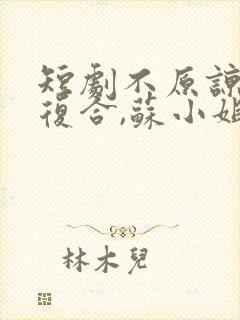 短劇不原諒
復合,蘇小姐
林木兒